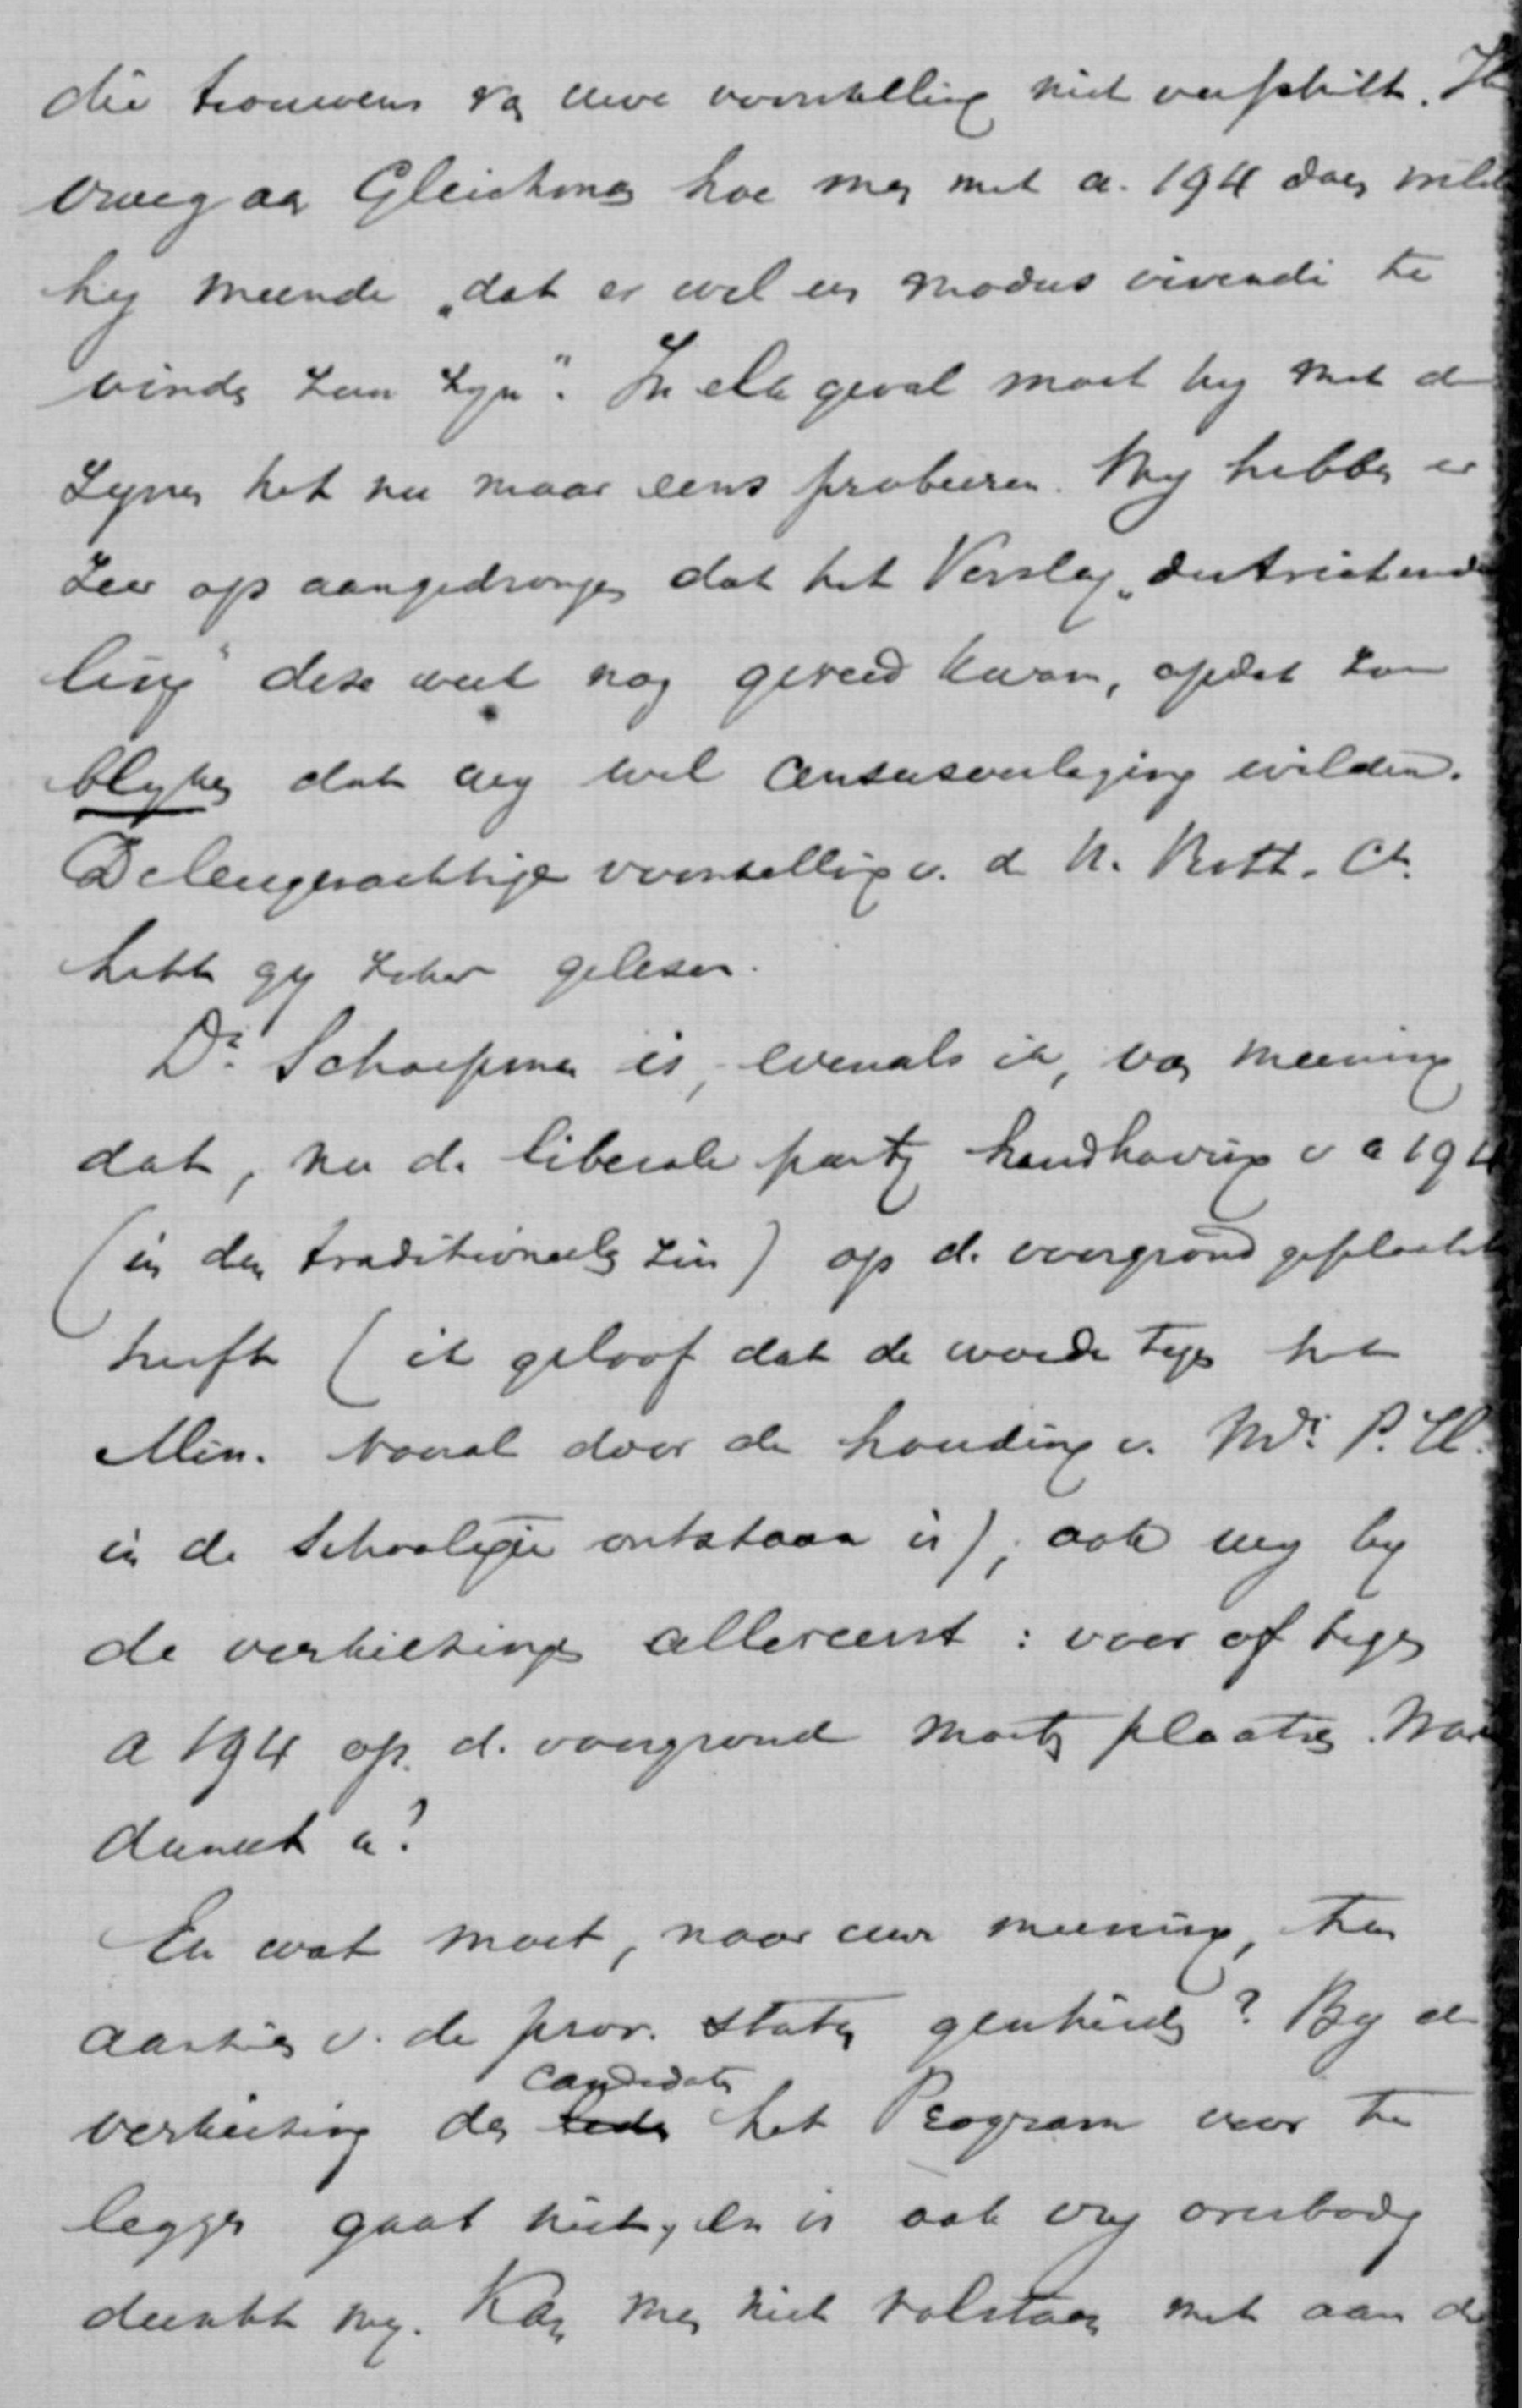 die trouwens van uwe voorstelling niet verschilt. Ik
vroeg aan Gleichman hoe men met a. 194 doen wilde
hij meende „dat er wel een modus vivendi te
vinden zou zijn". In elk geval moet hij met de
zijnen het nu maar eens probeeren. Wij hebben er
zeer op aangedrongen dat het Verslag „districtenindee
ling" deze week nog gereed kwam, opdat zou
blijken dat wij wel censusverlaging wilden.
De leugenachtige voorstelling v. d N. Rott. Ct.
hebt gij zeker gelezen.
Dr. Schaepman is, evenals ik, van meening
dat, nu de liberale partij handhaving v a 194
(in den traditioneelen zin) op de voorgrond geplaatst
heeft (ik geloof dat de woede tegen het
Min. vooral door de houding v. Mr. P. H.
in de Schoolquestie ontstaan is), ook wij bij
de verkiezingen allereerst: voor of tegen
a 194 op d. voorgrond moeten plaatsen. Wat
dunkt u?
En wat moet, naar uw meening, ten
aanzien v. de prov. staten geschieden? Bij de
verkiezing der leden candidaten het Program voor te
leggen gaat niet, en is ook vrij overbodig
dunkt mij. Kan men niet volstaan met aan de